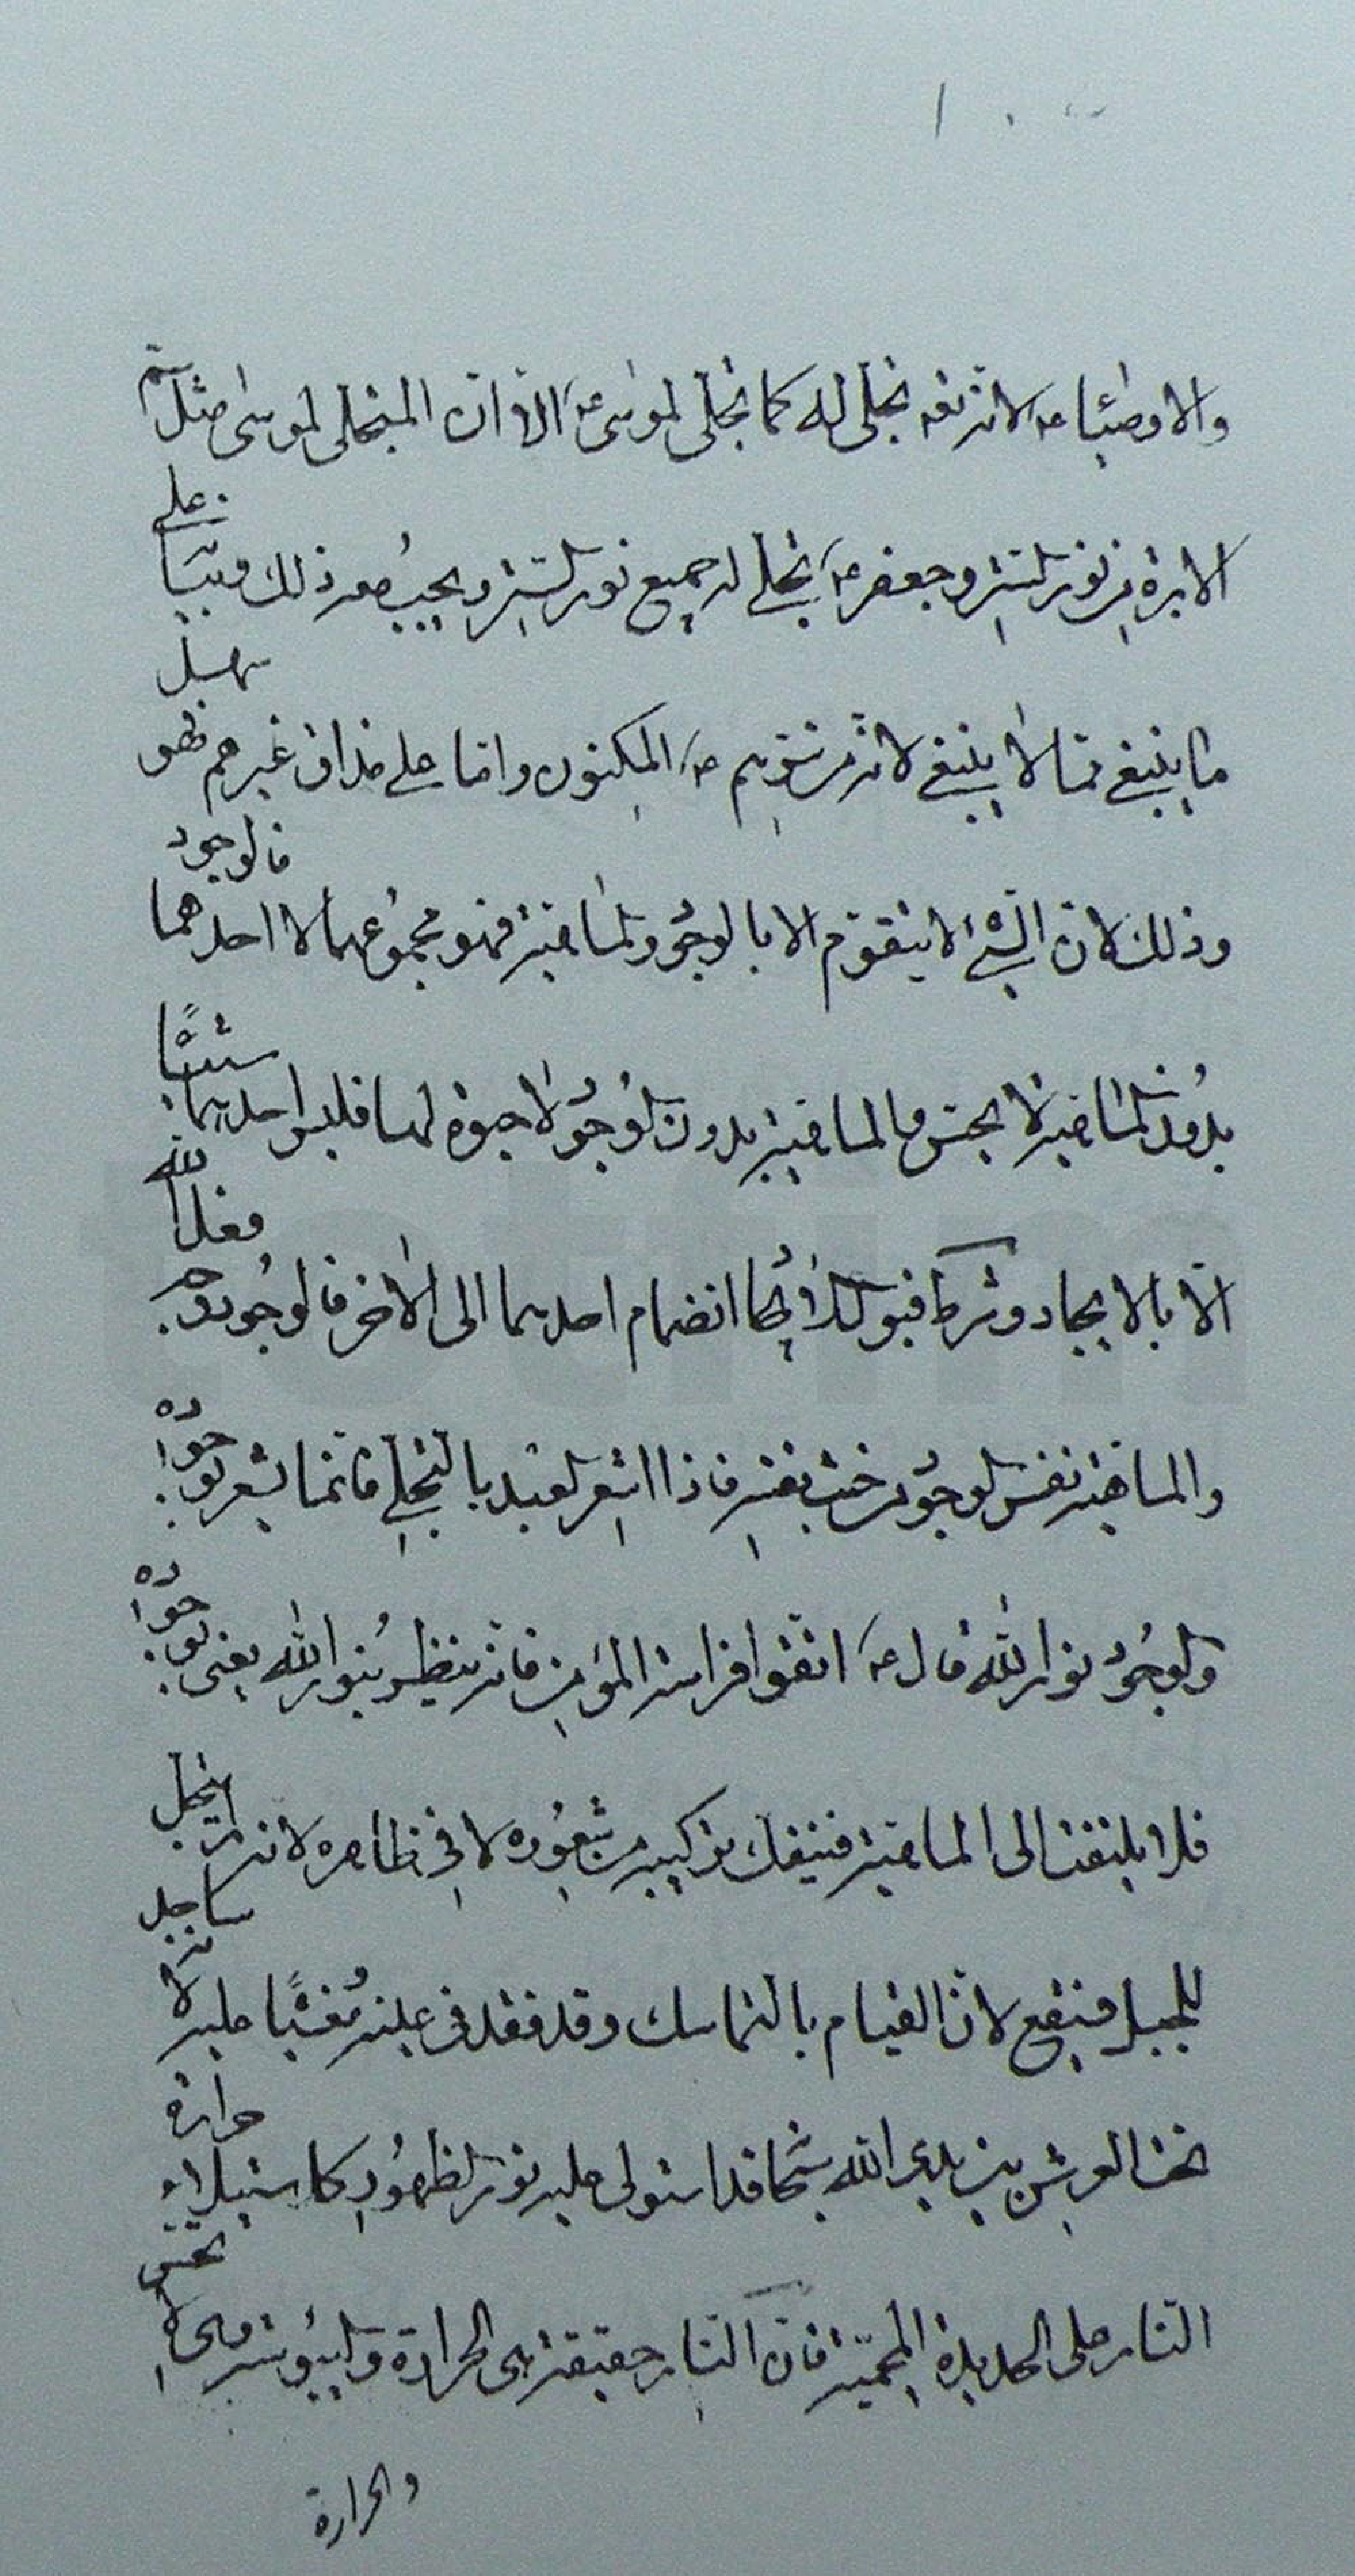 والاوصياء ع لانه تعه تجلى له كما تجلى لموسى ع الا ان المتجلى لموسى مثل سم
الابرة من نور الستر وجعفر ع تجلى له جميع نور الستر ويجب معه ذلك مبيّنا على
ما ينبغي فما لا ينبغي لانه من سرهم المكنون واما على مذاق غيرهم فهو سهل
وذلك لان الشئ لا يتقوم الا بالوجود والماهية فهو مجموعهما لا احدهما فالوجود
بدون الماهية لا يحس والماهية بدون الوجود لا حيوة لها فليس احدهما شيئًا
الّا بالايجاد وشرط قبول الايجاد انضمام احدهما الى الاخر فالوجود فعل الله
والماهية نفس الوجود من حيث نفسه فاذا اشعر العبد بالتجلي فانما يشعر بوجوده
والوجود نور الله قال ع اتقوا فراسة المؤمن فانه ينظر بنور الله يعنى بوجوده
فلا يلتفت الى الماهية فينفك تركيبه من شعوره لا في ظاهره لانه
للجبل فيقع لان القيام بالتماسك وقد فقد في علته مُغشيًا عليه لانه ساجد
تحت العرش بين يدي الله سبحانه قد استولى عليه نور الظهور كاستيلاء حرارة
النار على الحديدة المحمية فان النار حقيقة هى الحرارة واليبوسة وهى لا تحس
والحرارة